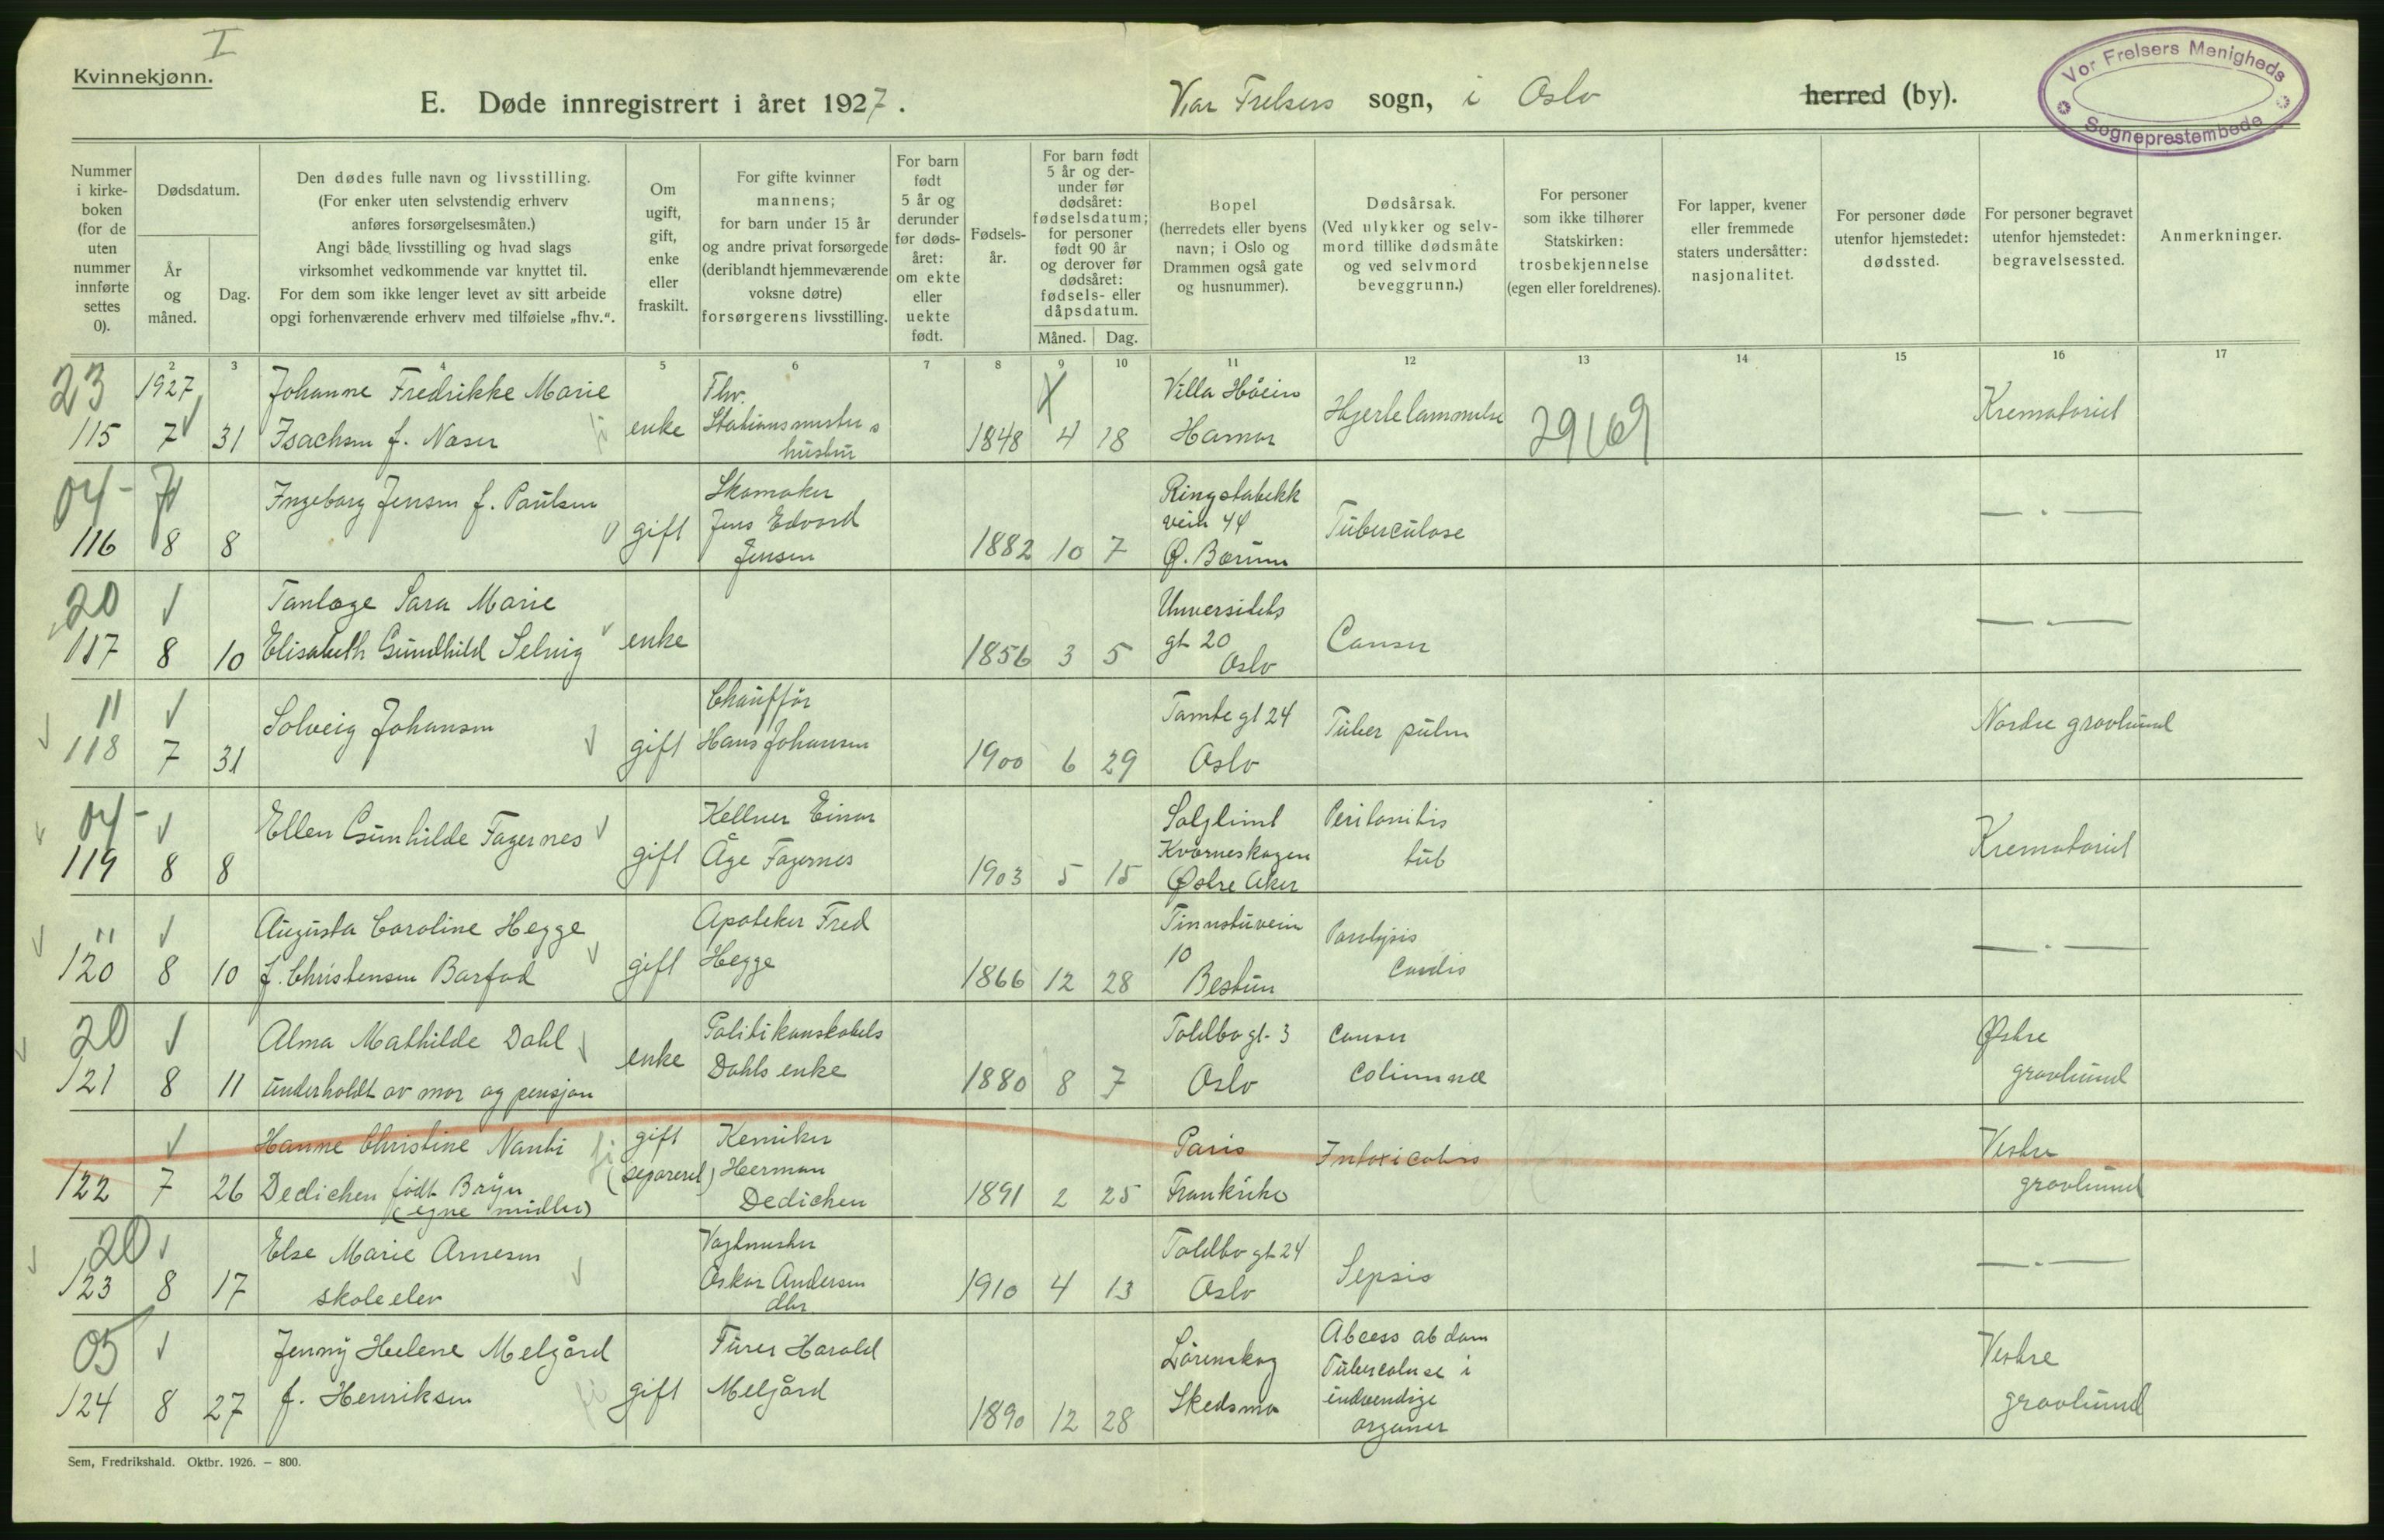 I
Kvinnekjønn.
E. Døde innregistrert i året 1927.
Vår Frelsers sogn, i Oslo herred (by).
Vor Frelsers Menigheds
Sogneprestembede
Nummer i kirkeboken (for de uten nummer innførte settes 0).
Dødsdatum.
År og måned.
Dag.
Den dødes fulle navn og livsstilling.
(For enker uten selvstendig erhverv
anføres forsørgelsesmåten.)
Angi både livsstilling og hvad slags
virksomhet vedkommende var knyttet til.
For dem som ikke lenger levet av sitt arbeide
opgi forhenværende erhverv med tilføielse „fhv.“.
Om ugift, gift, enke eller fraskilt.
For gifte kvinner
mannens;
for barn under 15 år
og andre privat forsørgede
(deriblandt hjemmeværende
voksne døtre)
forsørgerens livsstilling.
For barn født 5 år og derunder før dødsåret: om ekte eller uekte født.
Fødselsår.
For barn født 5 år og derunder før dødsåret: fødselsdatum; for personer født 90 år og derover før dødsåret: fødsels- eller dåpsdatum.
Måned. Dag.
Bopel
(herredets eller byens
navn; i Oslo og
Drammen også gate
og husnummer).
Dødsårsak.
(Ved ulykker og selv-
mord tillike dødsmåte
og ved selvmord
beveggrunn.)
For personer
som ikke tilhører
Statskirken:
trosbekjennelse
(egen eller foreldrenes).
For lapper, kvener
eller fremmede
staters undersåtter:
nasjonalitet.
For personer døde
utenfor hjemstedet:
dødssted.
For personer begravet
utenfor hjemstedet:
begravelsessted.
Anmerkninger.
2 3 4 5 6 7 8 9 10 11 12 13 14 15 16 17
23 1927 Johanne Fredrikke Marie Fhv. Villa Håeim
115 7 31 Isachsen f. Naser enke Stationsmesters hustru 1848 4 18 Hamar Hjertelammelse 29169 Krematoriet
04 Ingeborg Jensen f. Paulsen Skomaker Ringstabekk
116 8 8 gift Jens Edvard Jensen 1882 10 7 vein 44 Ø. Bærum Tuberculose — " —
20 Tanlæge Sara Marie Universitets
117 8 10 Elisabeth Gundhild Selvig enke 1856 3 5 gt 20 Oslo Cancer — " —
11 Solveig Johansen Chauffør Tomtegt 24
118 7 31 gift Hans Johansen 1900 6 29 Oslo Tuber pulm Nordre gravlund
04 Ellen Gunhilde Fagernes Kellner Einar Solglimt Peritonitis
119 8 8 gift Åge Fagernes 1903 5 15 Kværneskogen Østre Aker tub Krematoriet
11 Augusta Caroline Hegge Apoteker Fred Tinnstuvein
120 8 10 f. Christensen Barfod gift Hegge 1866 12 28 10 Bestun Paralysis Cordis — " —
20 Alma Mathilde Dahl Politikonstabels Toldbogt. 3 Cancer Østre
121 8 11 underholdt av mor og pensjon enke Dahls enke 1880 8 7 Oslo Columnae gravlund
Hanne Christine Nanti gift Kemiker Paris Intoxicatio Vestre
122 7 26 Dedichen født Bryn (egne midler) (separeret) Herman Dedichen 1891 2 25 Frankrike gravlund
20 Else Marie Arnesen Vagtmester Toldbogt 24
123 8 17 skoleelev Oskar Andersen dtr. 1910 4 13 Oslo Sepsis — " —
05 Jenny Helene Melgård Furer Harald Lørenskog Abcess abdom Vestre
124 8 27 f. Henriksen gift Melgård 1890 12 28 Skedsmo Tuberculose i indvendige organer gravlund
Sem, Fredrikshald. Oktbr. 1926. — 800.